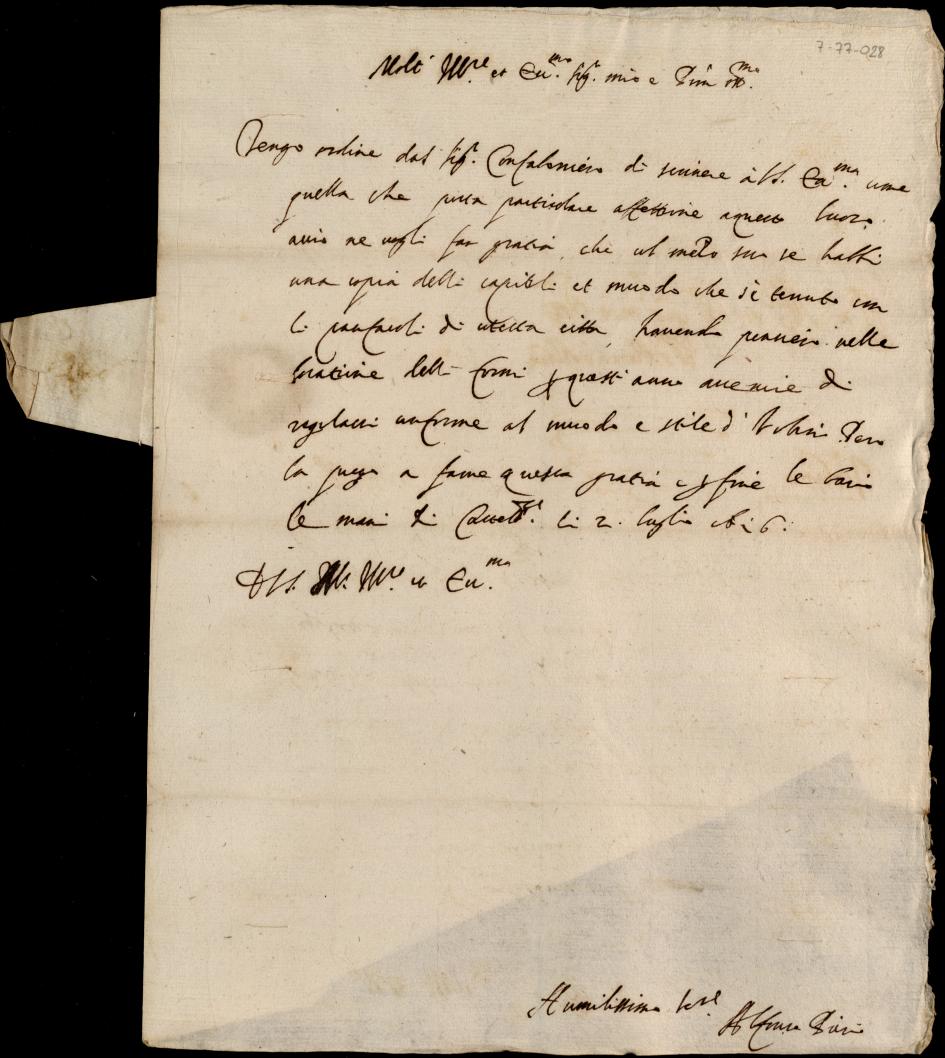 7-77-028
Molt' Ill.re et Ecc.mo Sig.r mio e P'ron
Tengo ordine dal Sig.r Confaloniero di scrivere à V.S. Ecc.ma come
quella che porta particolare affettione a questo luogo
acciò ne vogli far gratia, che col mezo suo se habbi
una copia delli capitoli et muodo che si è tenuto con
li panfacoli di cotesta città, havendo pensiero nelle
locatione delli forni p questi anno avenire di
regolarsi conforme al muodo e stile d' Però
la prego a farne questa gratia e p fine le bacio
le mani di li 2. luglio
D V.S. M. Ill.re et Ecc.ma
Humilissimo Ser.re
Alfonso